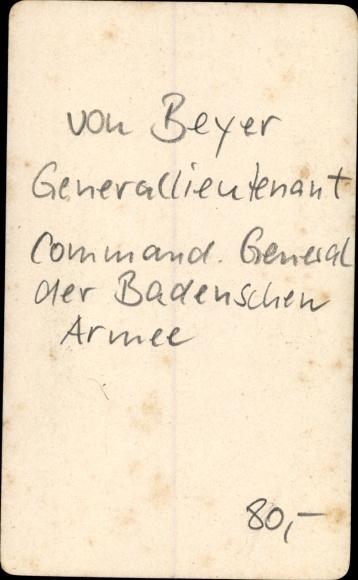 von Beyer
Generallieutenant
Command. General
der Badenschen
Armee
80,–